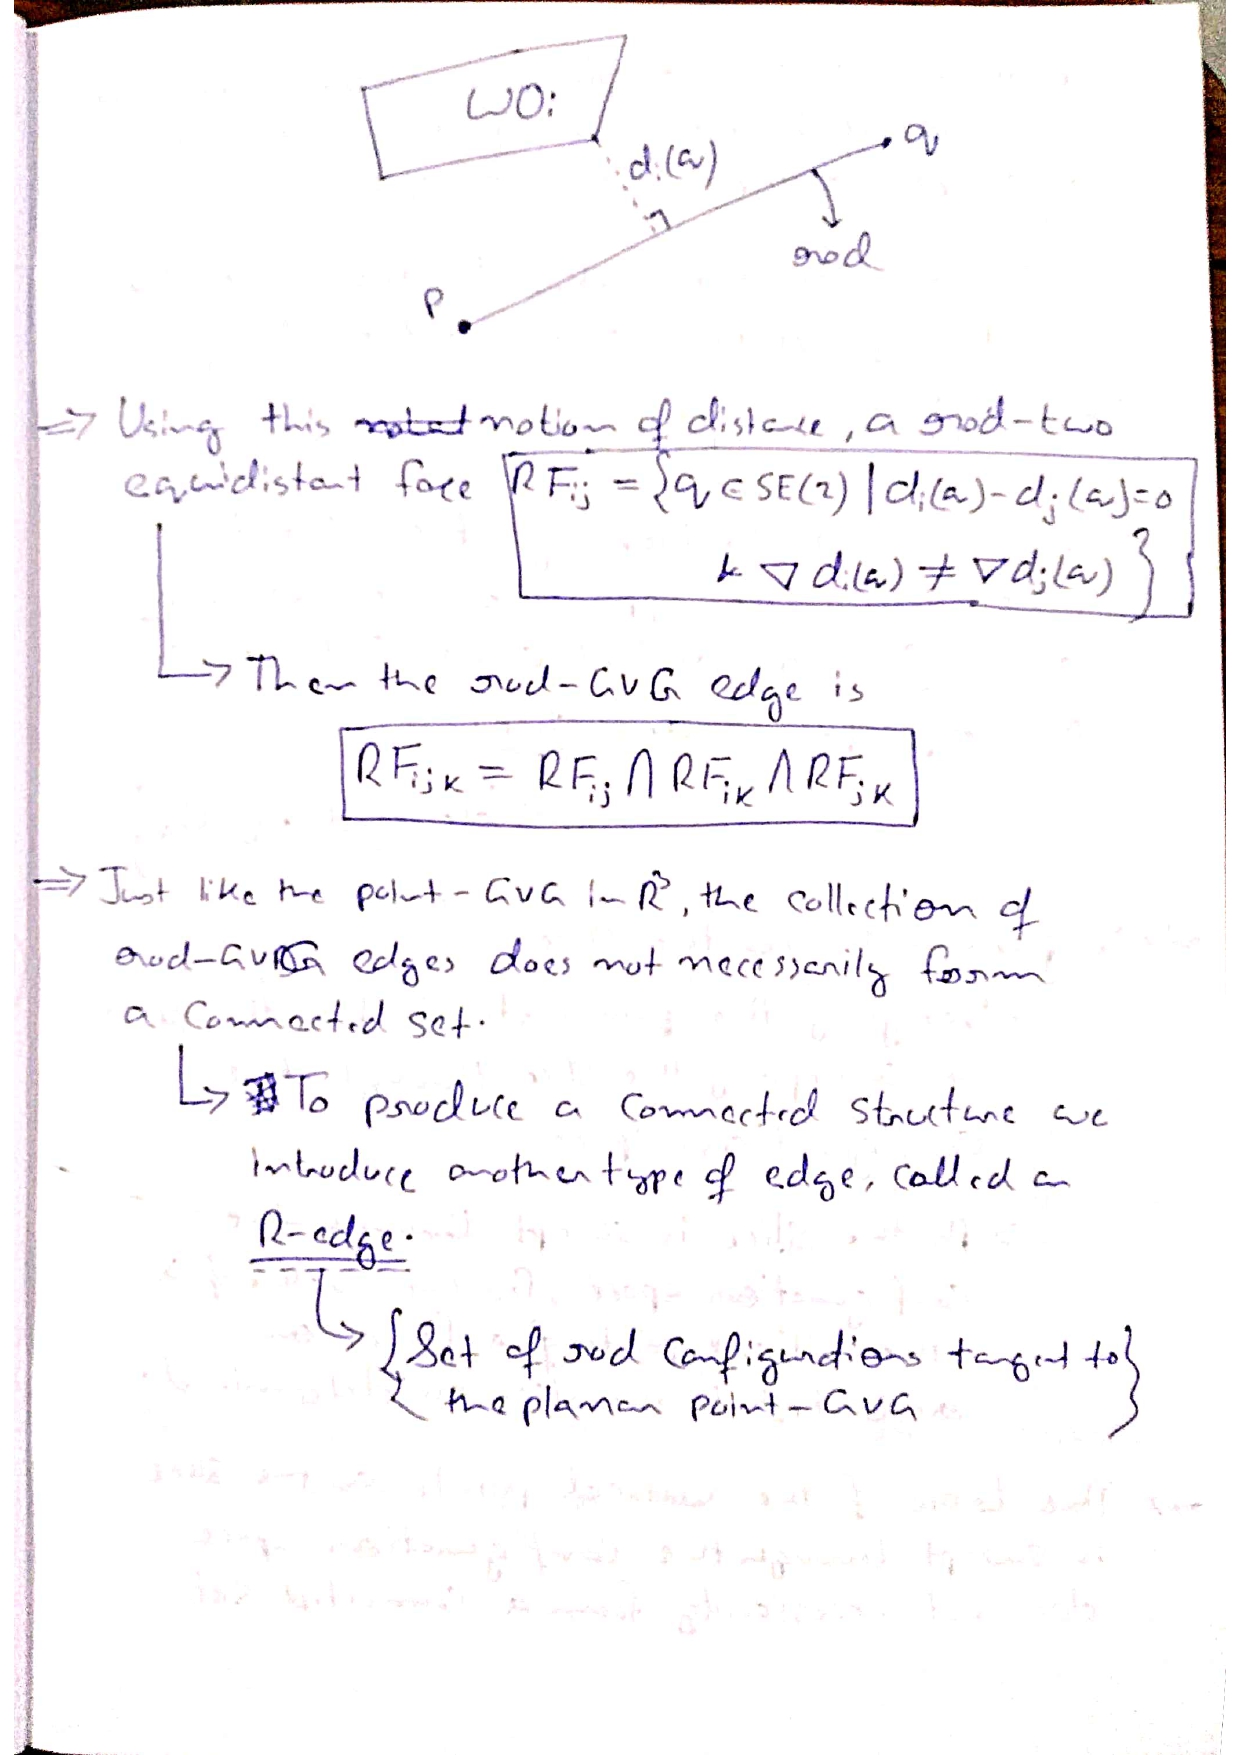 WOi
di(q)
q
rod
P
⇒ Using this notion of distance, a rod-two
equidistant face RFij = {q ∈ SE(2) | di(q) - dj(q) = 0
& ∇di(q) ≠ ∇dj(q)}
↳ Then the rod-GVG edge is
RFijk = RFij ∩ RFik ∩ RFjk
⇒ Just like the point-GVG in R³, the collection of
rod-GVG edges does not necessarily form
a Connected set.
↳ To produce a connected structure we
introduce another type of edge, called an
R-edge.
↳ {Set of rod configurations tangent to
the planar point-GVG}